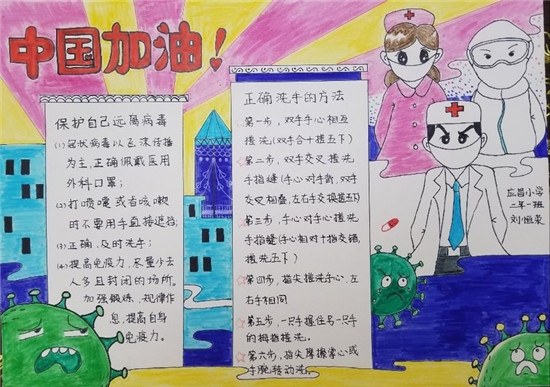 中国加油!
保护自己远离病毒
(1)冠状病毒以飞沫传播
为主,正确佩戴医用
外科口罩;
(2)打喷嚏或者咳嗽
时不要用手直接遮挡;
(3)正确、及时洗手;
(4)提高免疫力,尽量少去
人多且封闭的场所。
加强锻炼、规律作
息,提高自身
免疫力。
正确洗手的方法
第一步,双手手心相互
搓洗(双手合十搓五下)
第二步,双手交叉搓洗
手指缝(手心对手背,双手
交叉相叠,左右手交换搓五下)
第三步,手心对手心搓洗
手指缝(手心相对十指交错,
搓洗五下)
第四步,指尖搓洗手心,左
右手相同
第五步,一只手握住另一只手
的拇指搓洗。
第六步,指尖摩擦掌心或
手腕转动洗。
应昌小学
二年一班
刘恒荣